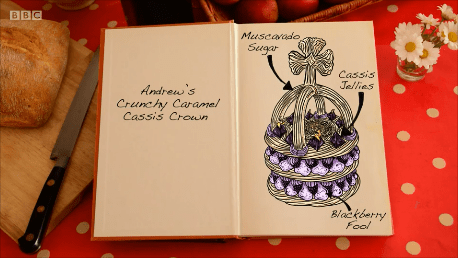 BBC
Andrew's
Crunchy Caramel
Cassis Crown
Muscavado
Sugar
Cassis
Jellies
Blackberry
Fool